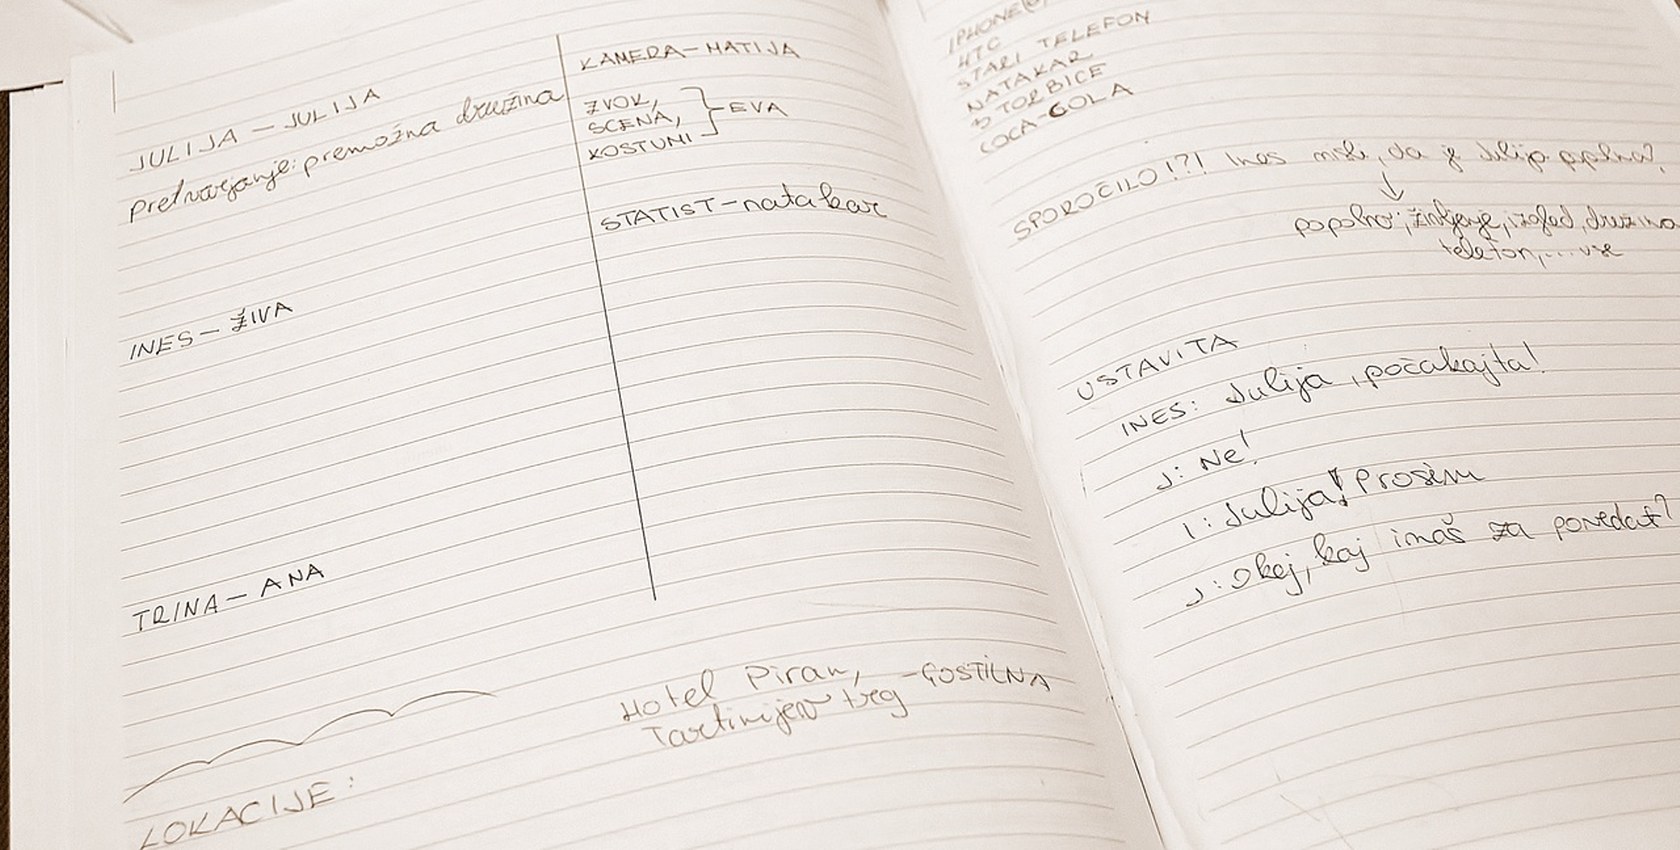 JULIJA – JULIJA
pretvarjanje: premožna družina
INES – ŽIVA
TRINA – ANA
LOKACIJE:
KAMERA – MATIJA
ZVOK,
SCENA,
KOSTUMI
EVA
STATIST – natakar
Hotel Piran,
Tartinijev trg
– GOSTILNA
IPHONE
HTC
STARI TELEFON
NATAKAR
5 TORBICE
COCA-COLA
SPOROČILO!?! Ines misli, da je Julija popolna?
popolno: življenje, izgled, družina
telefon,... vse
USTAVITA
INES: Julija, počakajta!
J: Ne!
I: Julija! Prosim
J: Okej, kaj imaš za povedat?